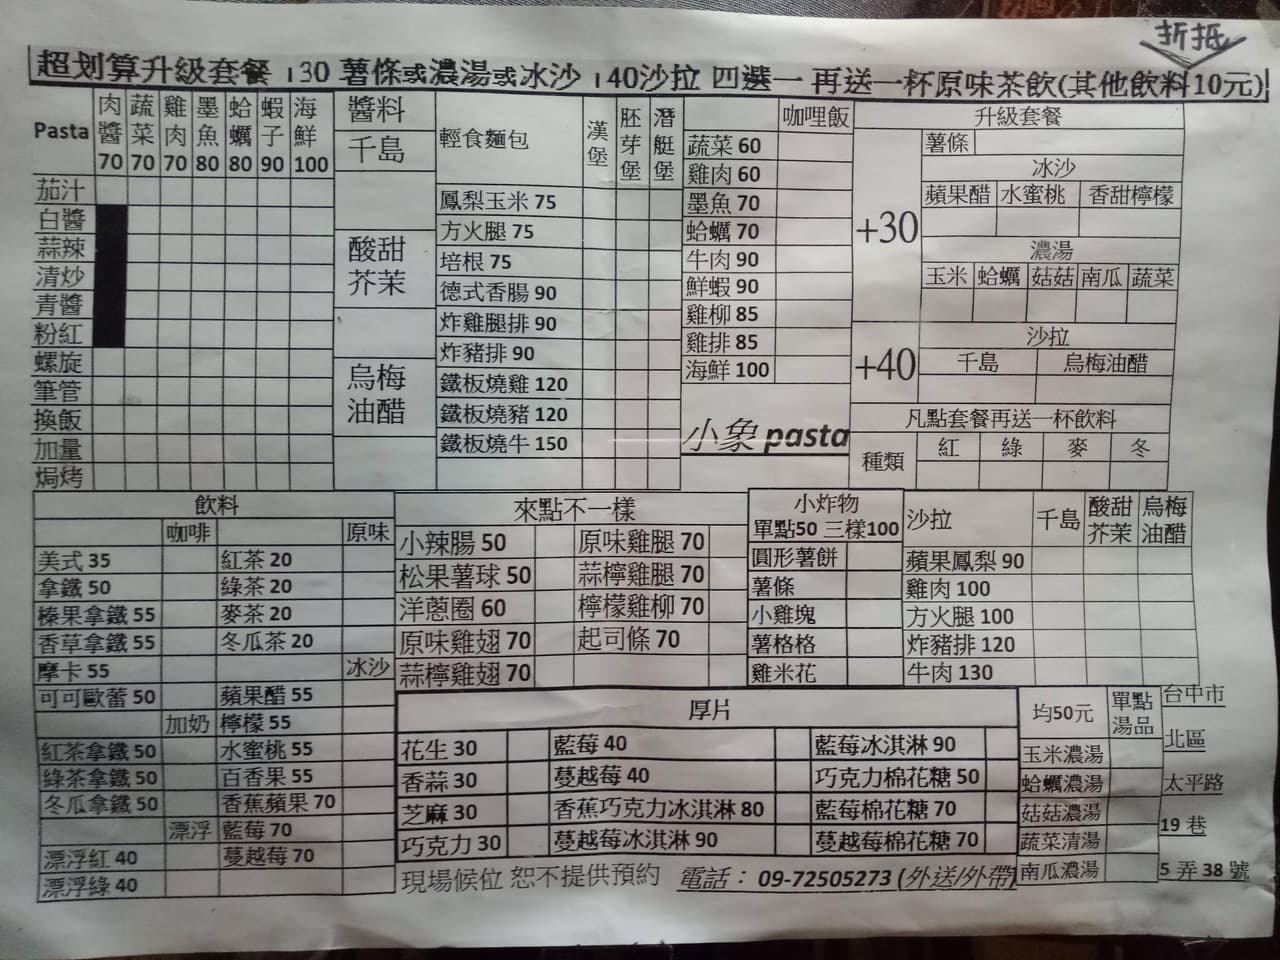 折抵
超划算升級套餐 +30 薯條或濃湯或冰沙 +40沙拉 四選一 再送一杯原味茶飲(其他飲料10元)
Pasta 肉醬70 蔬菜70 雞肉70 墨魚80 蛤蠣80 蝦子90 海鮮100
茄汁
白醬
蒜辣
清炒
青醬
粉紅
螺旋
筆管
換飯
加量
焗烤
醬料
千島
酸甜芥茉
烏梅油醋
輕食麵包 漢堡 胚芽堡 潛艇堡
鳳梨玉米 75
方火腿 75
培根 75
德式香腸 90
炸雞腿排 90
炸豬排 90
鐵板燒雞 120
鐵板燒豬 120
鐵板燒牛 150
咖哩飯
蔬菜 60
雞肉 60
墨魚 70
蛤蠣 70
牛肉 90
鮮蝦 90
雞柳 85
雞排 85
海鮮 100
小象 pasta
升級套餐
+30
薯條
冰沙
蘋果醋 水蜜桃 香甜檸檬
濃湯
玉米 蛤蠣 菇菇 南瓜 蔬菜
+40
沙拉
千島 烏梅油醋
凡點套餐再送一杯飲料
種類 紅 綠 麥 冬
飲料
咖啡 原味
美式 35 紅茶 20
拿鐵 50 綠茶 20
榛果拿鐵 55 麥茶 20
香草拿鐵 55 冬瓜茶 20
摩卡 55 冰沙
可可歐蕾 50 蘋果醋 55
加奶 檸檬 55
紅茶拿鐵 50 水蜜桃 55
綠茶拿鐵 50 百香果 55
冬瓜拿鐵 50 香蕉蘋果 70
漂浮 藍莓 70
漂浮紅 40 蔓越莓 70
漂浮綠 40
來點不一樣
小辣腸 50 原味雞腿 70
松果薯球 50 蒜檸雞腿 70
洋蔥圈 60 檸檬雞柳 70
原味雞翅 70 起司條 70
蒜檸雞翅 70
小炸物
單點50 三樣100
圓形薯餅
薯條
小雞塊
薯格格
雞米花
沙拉 千島 酸甜芥茉 烏梅油醋
蘋果鳳梨 90
雞肉 100
方火腿 100
炸豬排 120
牛肉 130
厚片
花生 30 藍莓 40 藍莓冰淇淋 90
香蒜 30 蔓越莓 40 巧克力棉花糖 50
芝麻 30 香蕉巧克力冰淇淋 80 藍莓棉花糖 70
巧克力 30 蔓越莓冰淇淋 90 蔓越莓棉花糖 70
現場候位 恕不提供預約 電話： 09-72505273 (外送/外帶)
均50元 單點湯品
玉米濃湯
蛤蠣濃湯
菇菇濃湯
蔬菜清湯
南瓜濃湯
台中市
北區
太平路
19 巷
5 弄 38 號